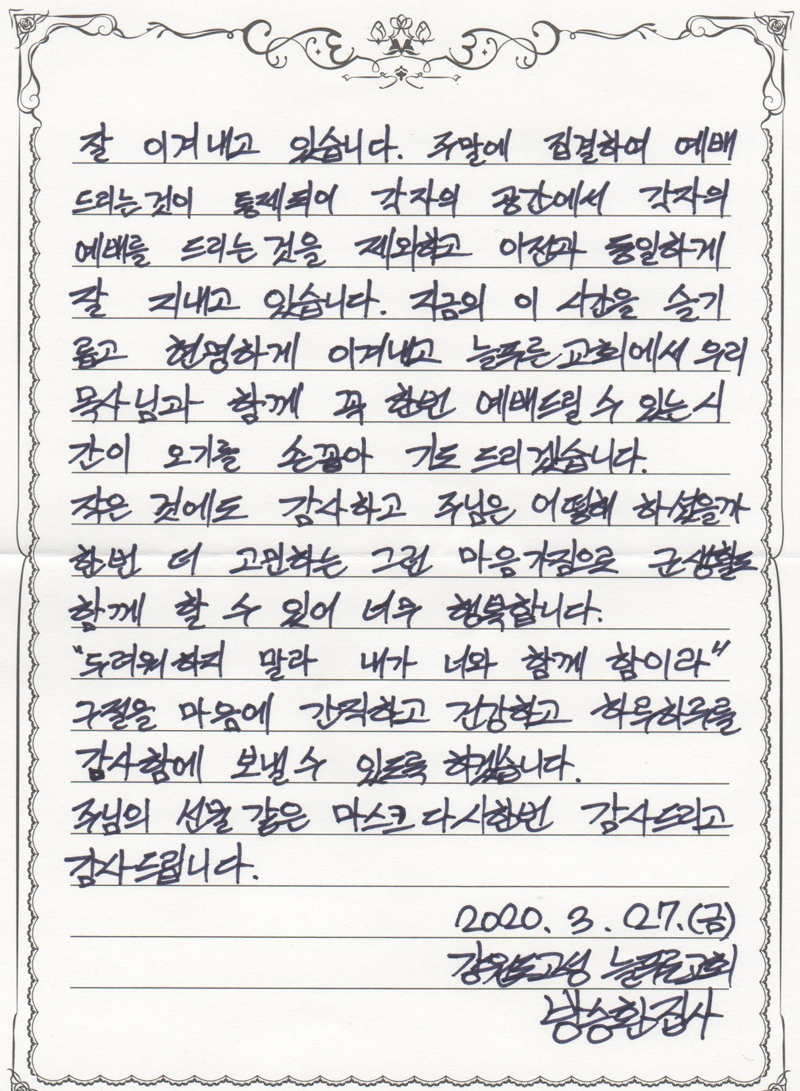 잘 이겨내고 있습니다. 주말에 집결하여 예배
드리는것이 통제되어 각자의 공간에서 각자의
예배를 드리는 것을 제외하고 이전과 동일하게
잘 지내고 있습니다. 지금의 이 시간을 슬기
롭고 현명하게 이겨내고 늘푸른교회에서 우리
목사님과 함께 꼭 한번 예배드릴 수 있는 시
간이 오기를 손꼽아 기도 드리겠습니다.
작은 것에도 감사하고 주님은 어떻해 하셨을까
한번 더 고민하는 그런 마음가짐으로 군생활도
함께 할 수 있어 너무 행복합니다.
"두려워하지 말라 내가 너와 함께 함이라"
구절을 마음에 간직하고 건강하고 하루하루를
감사함에 보낼 수 있도록 하겠습니다.
주님의 선물 같은 마스크 다시한번 감사드리고
감사드립니다.
2020. 3. 27.(금)
강원도고성 늘푸른교회
방승환집사